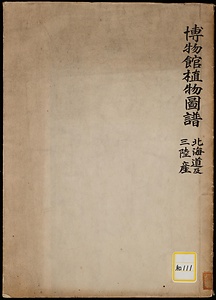 博物館植物圖譜
北海道及
三陸産
和111